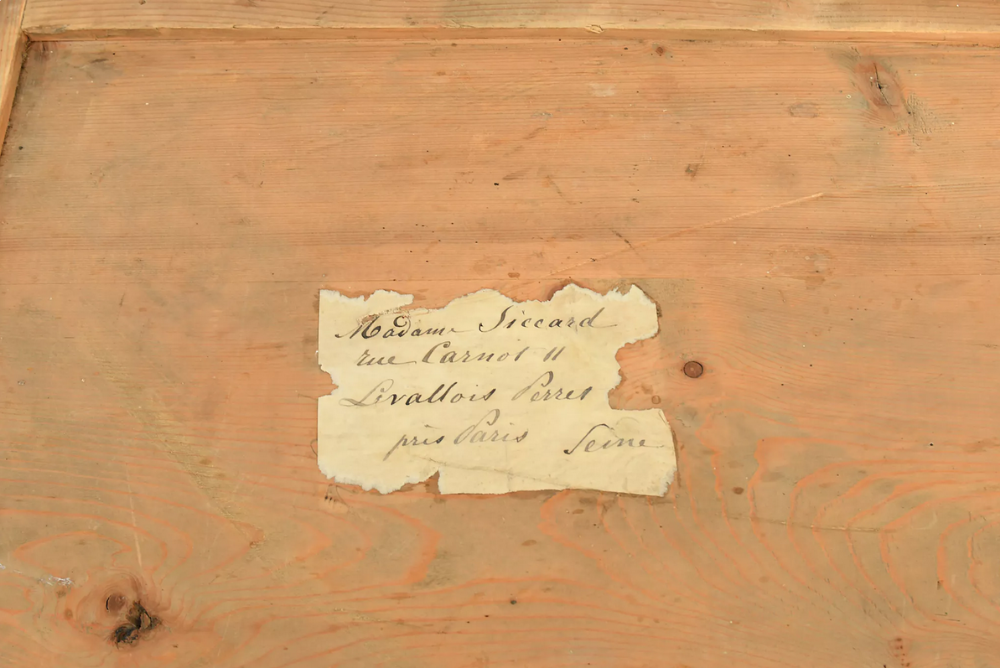 Madame Siccard
rue Carnot 11
Levallois Perret
près Paris Seine